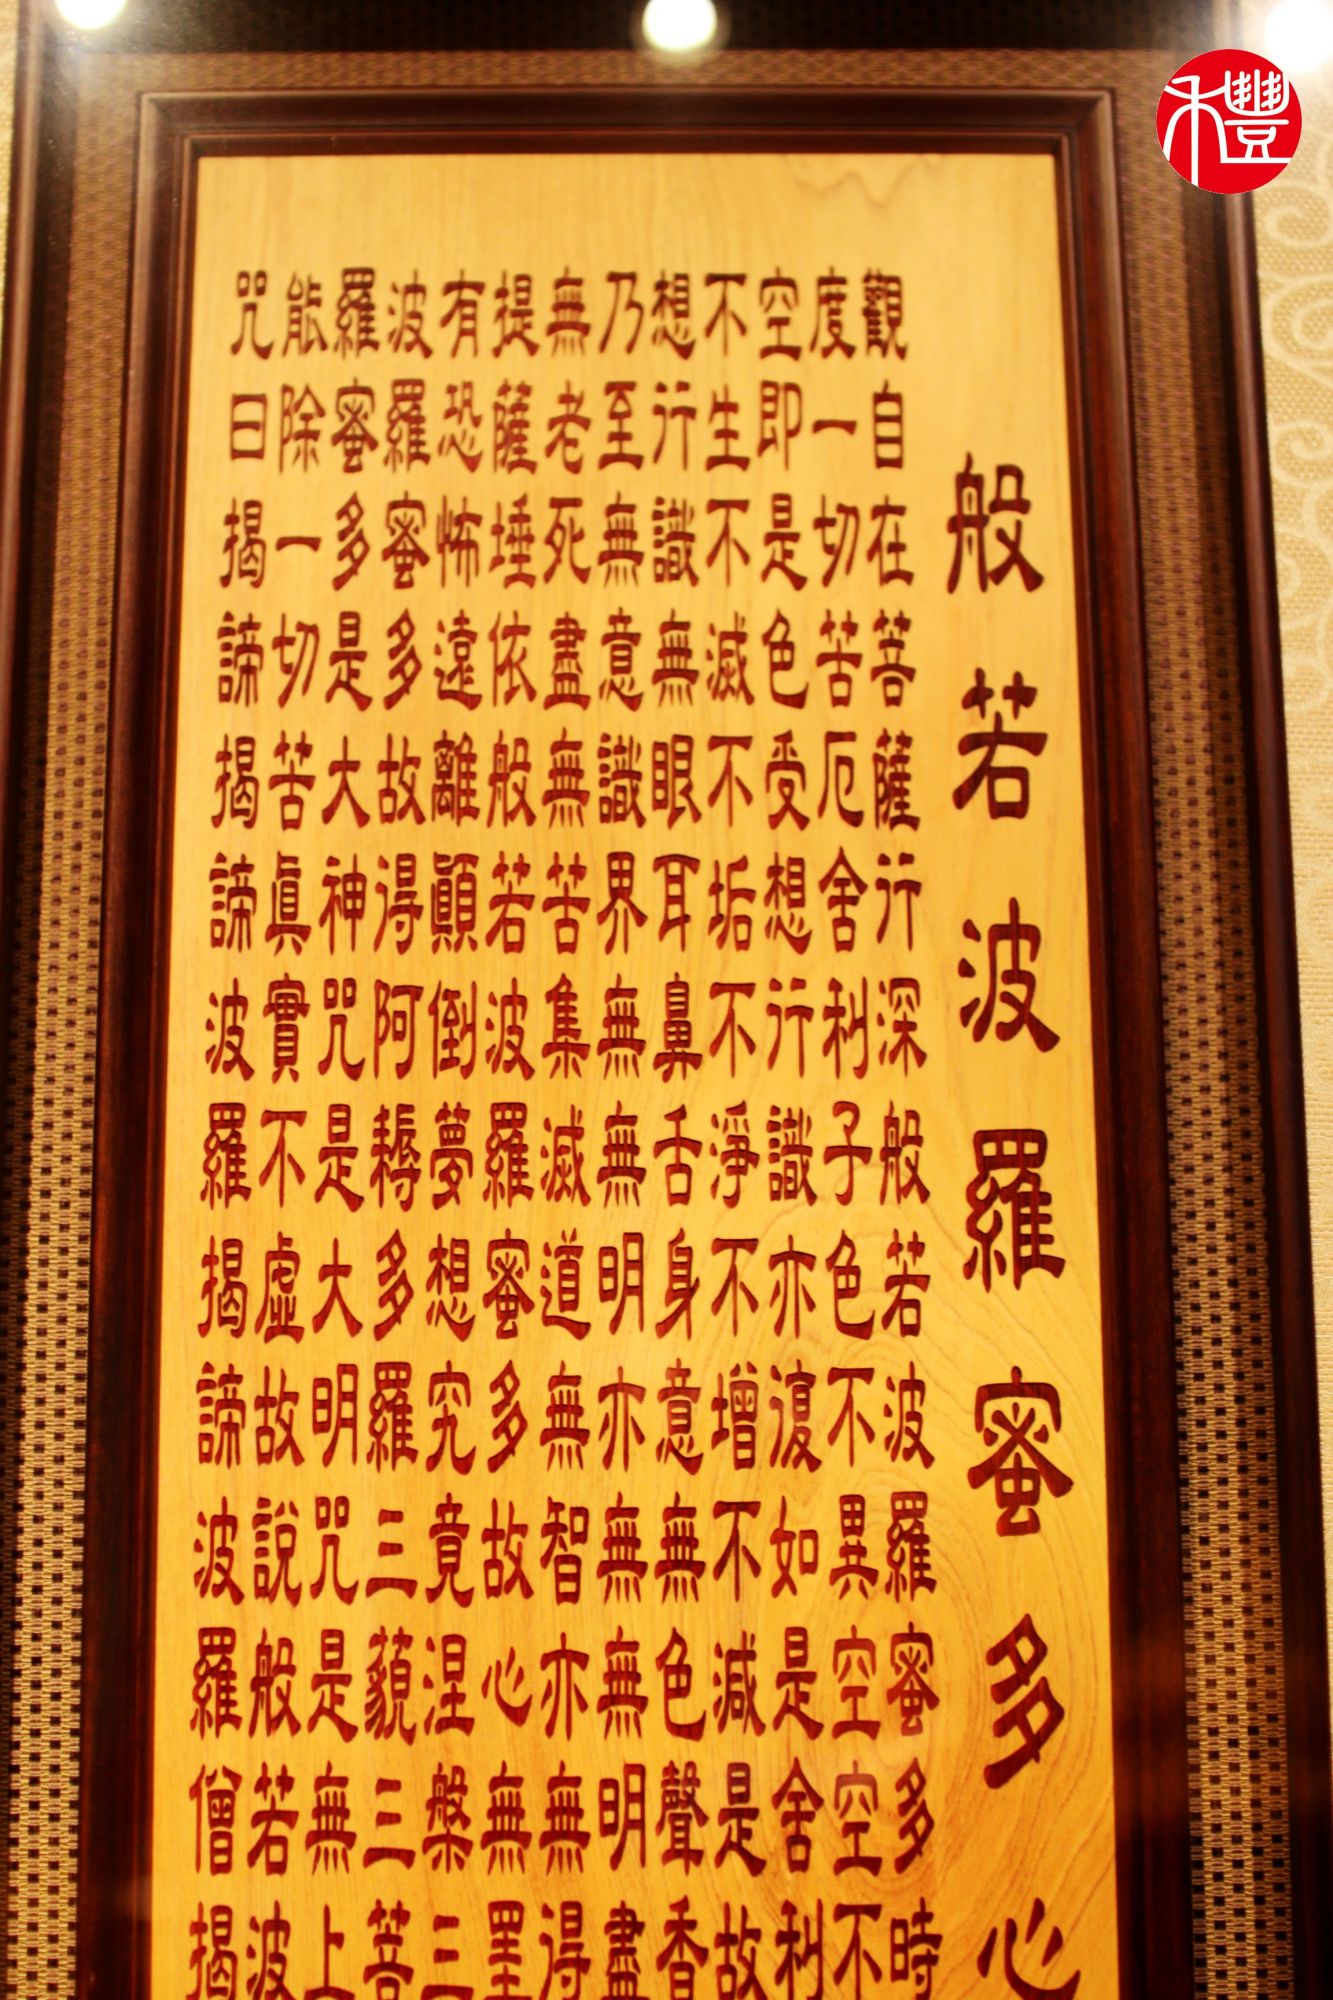 禮
般若波羅蜜多心
觀自在菩薩行深般若波羅蜜多時
度一切苦厄舍利子色不異空空不
空即是色受想行識亦復如是舍利
不生不滅不垢不淨不增不減是故
想行識無眼耳鼻舌身意無色聲香
乃至無意識界無無明亦無無明盡
無老死盡無苦集滅道無智亦無得
提薩埵依般若波羅蜜多故心無罣
有恐怖遠離顛倒夢想究竟涅槃三
波羅蜜多故得阿耨多羅三藐三菩
羅蜜多是大神咒是大明咒是無上
能除一切苦眞實不虛故說般若波
咒曰揭諦揭諦波羅揭諦波羅僧揭